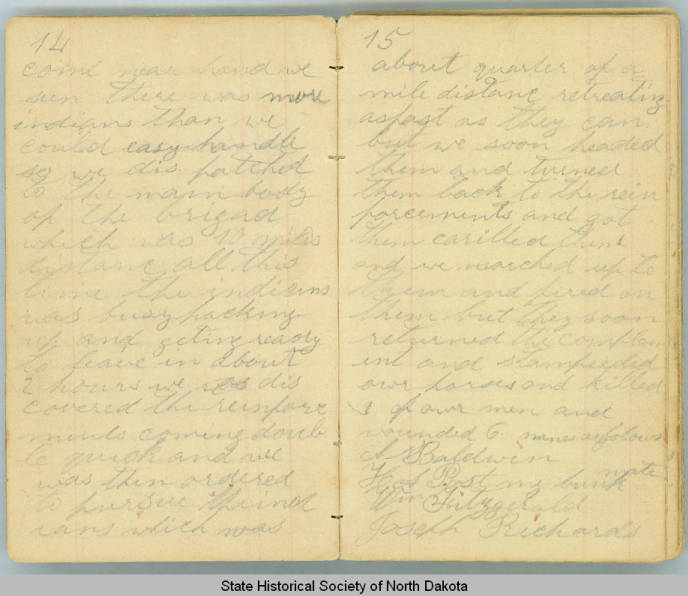 14
come near hand we
seen there was more
indians than we
could easy handle
so we dis patched
to the main body
of the brigad
which was 10 miles
distanc all this
time the indians
was busy packing
up and geting ready
to leave in about
2 hours we dis
covered the reinforc
ments coming doub
le quick and we
was then ordered
to pursue the ind
ians which was
15
about quarter of a
mile distanc retreating
as fast as they can
but we soon headed
them and turned
them back to the rein
forcements and got
them carilled then
and we marched up to
them and fired on
them but they soon
returned the complem
ent and stampeeded
our horses and killed
of our men and
wounded 6 names as folows
A Baldwin
Post my bunk mate
Wm Fitzgerald
Joseph Richards
State Historical Society of North Dakota